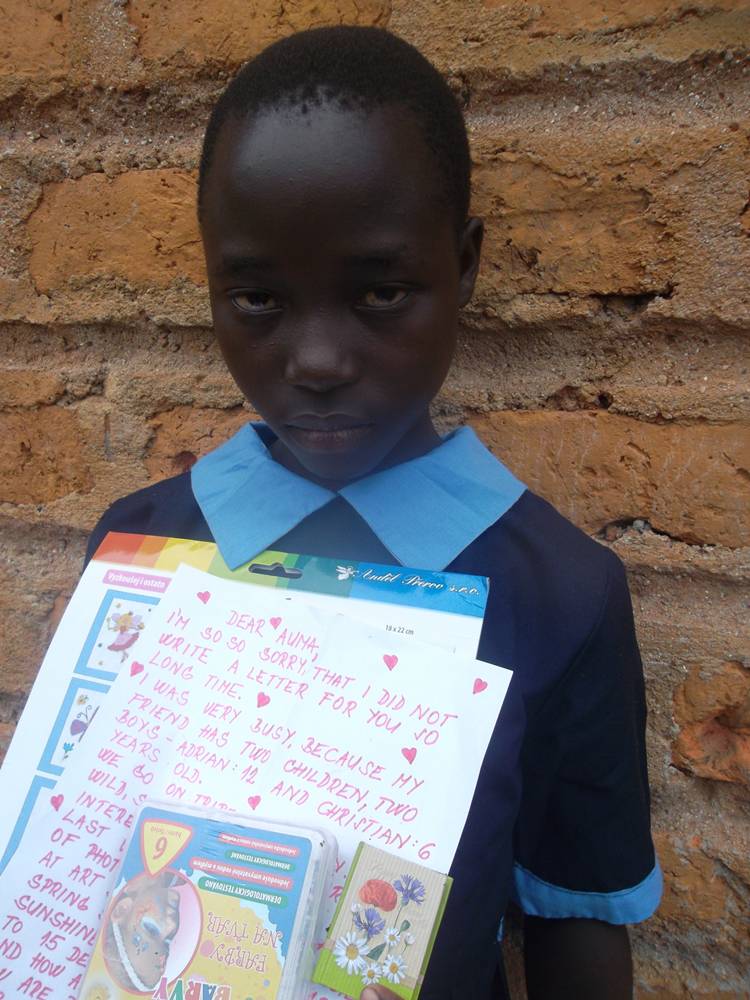 Vyzkoušej i ostatní
Anděl Přerov s.r.o.
18 x 22 cm
DEAR AUMA,
I'M SO SO SORRY, THAT I DID NOT
WRITE A LETTER FOR YOU SO
LONG TIME.
I WAS VERY BUSY, BECAUSE MY
FRIEND HAS TWO CHILDREN, TWO
BOYS - ADRIAN: 12 AND CHRISTIAN: 6
YEARS OLD.
WE GO ON
WILD,
LAST
OF
AT ART
SPRING
SUNSHIN
TO 15
ND HOW A
ARE
6
DERMATOLOGICKY TESTOVANÉ
DERMATOLOGICKY TESTOVÁNO
FARBY
NA TVÁR
BARVY